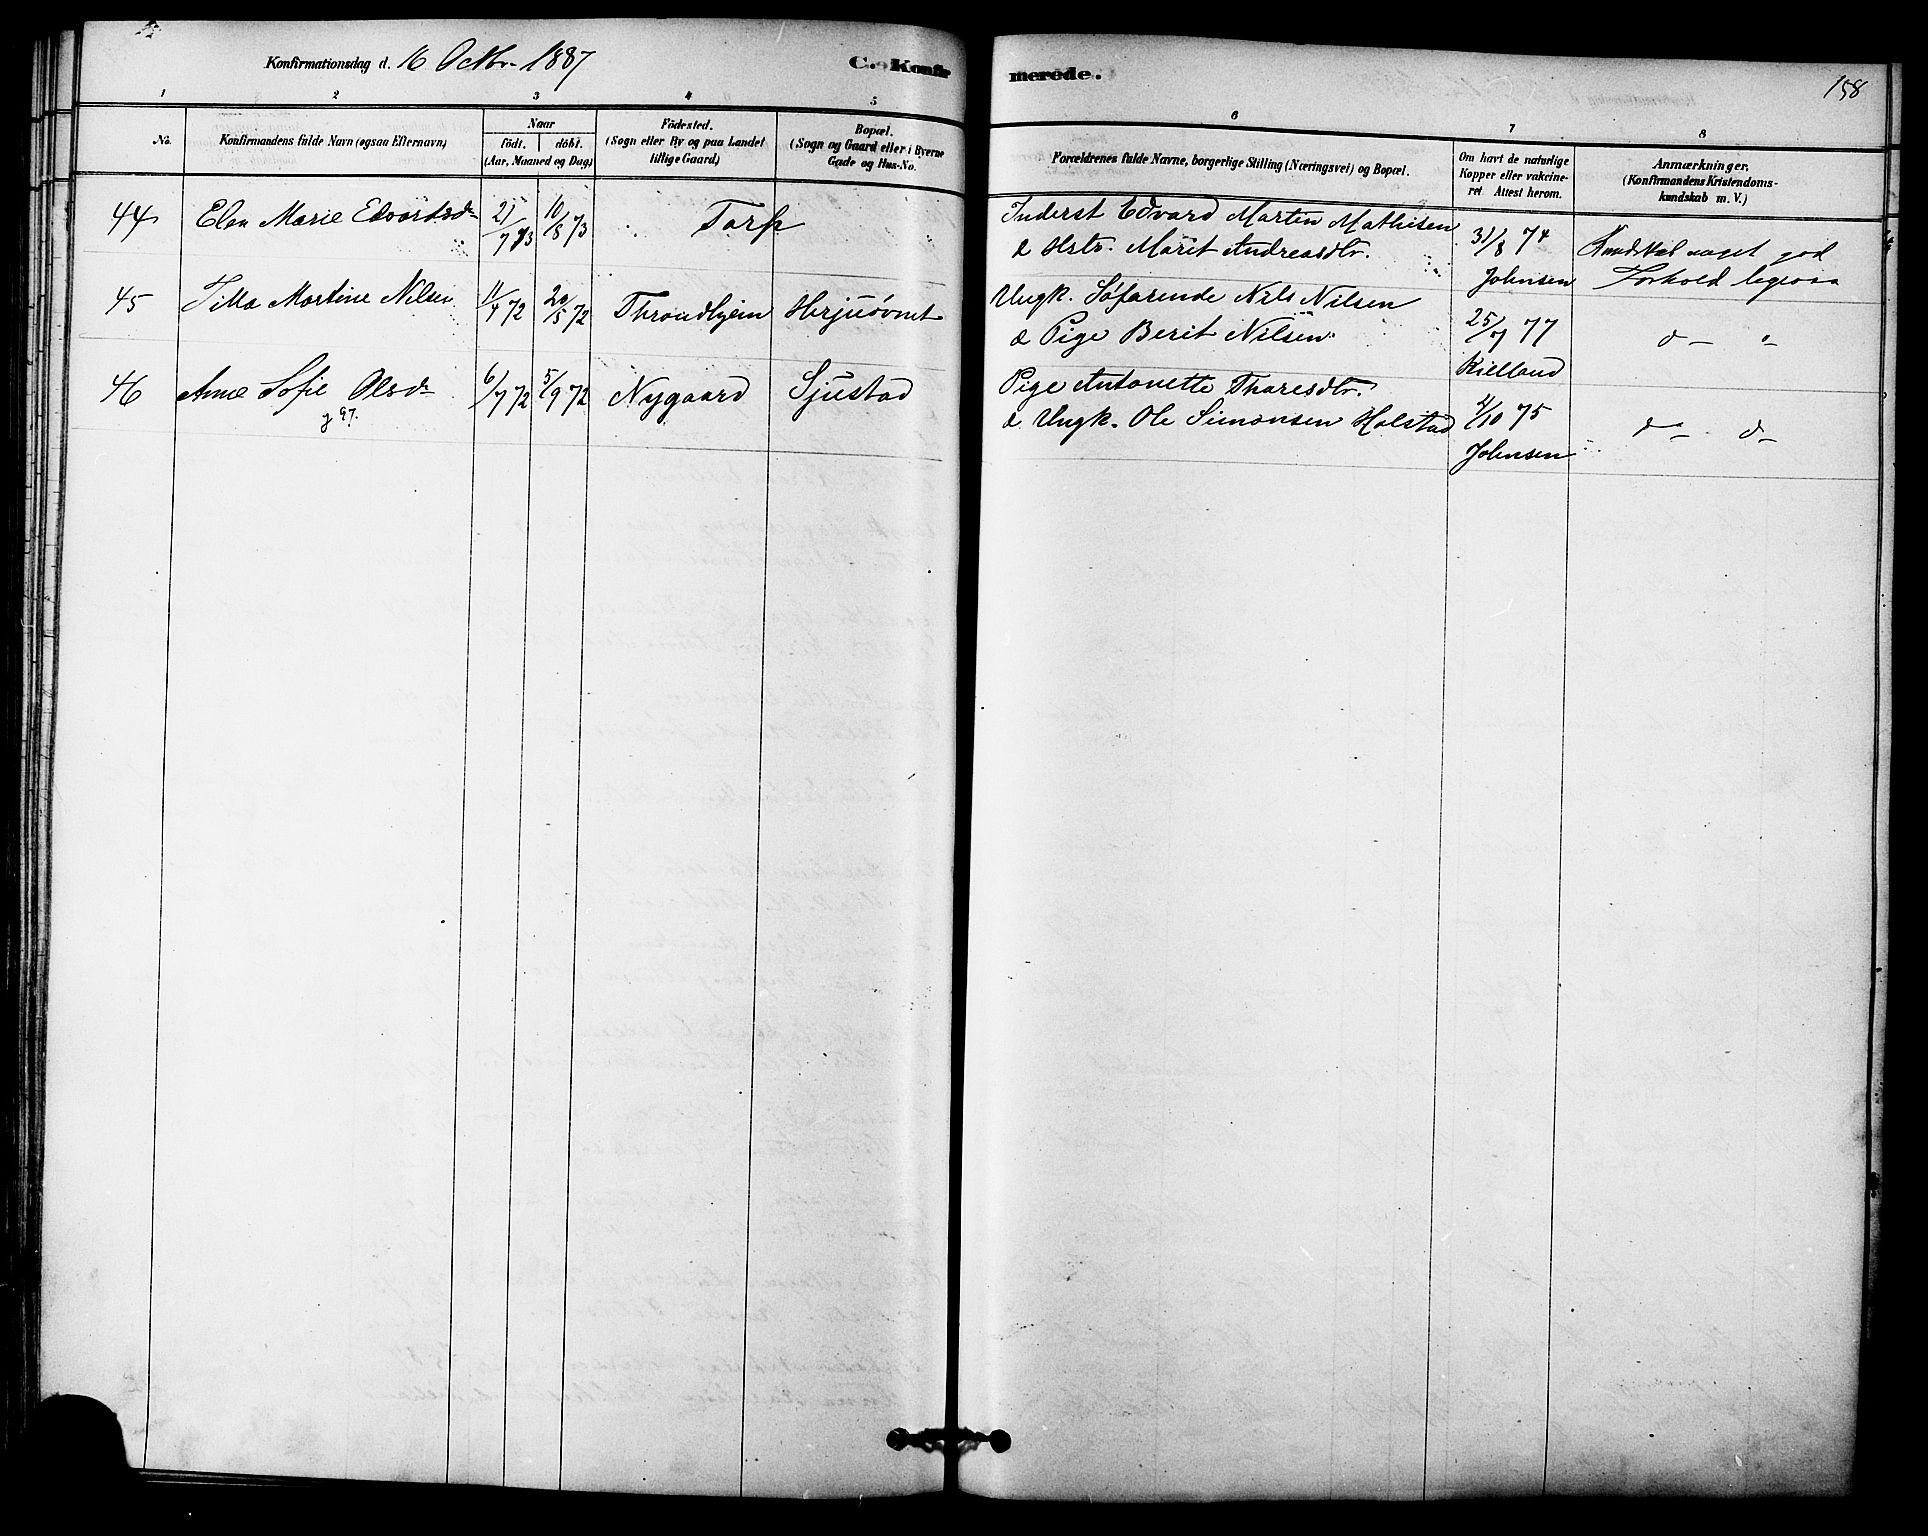 Konfirmationsdag d. 16 Octbr. 1887
C. Konfirmerede.
158
1 2 3 4 5 6 7 8
No.
Konfirmandens fulde Navn (ogsaa Efternavn)
Naar
födt. döbt.
(Aar, Maaned og Dag)
Födested.
(Sogn eller By og paa Landet
tillige Gaard)
Bopæl.
(Sogn og Gaard eller i Byerne
Gade og Hus-No.
Forældrenes fulde Navne, borgerlige Stilling (Næringsvei) og Bopæl.
Om havt de naturlige
Kopper eller vakcine-
ret Attest herom.
Anmærkninger.
(Konfirmandens Kristendoms-
kundskab m. V.)
44 Elen Marie Edvardsdr 21/7 73 10/8 73 Tarp Inderst Edvard Martin Mathisen 31/8 74 Kundskab noget god
& Hstr. Marit Andreasdtr. Johnsen Forhold ligesaa
45 Tilla Martine Nilsen 11/4 72 20/5 72 Throndhjem Hrjusövnet Ungk. Söfarende Nils Nilsen 25/7 77 d - "
& Pige Berit Nilsen Kielland
46 Anne Sofie Olsdr 6/7 72 5/9 72 Nygaard Sjustad Pige Antonette Tharesdtr.
g 97. & Ungk. Ole Simonsen Halstad 4/10 75 d - d -
Johnsen